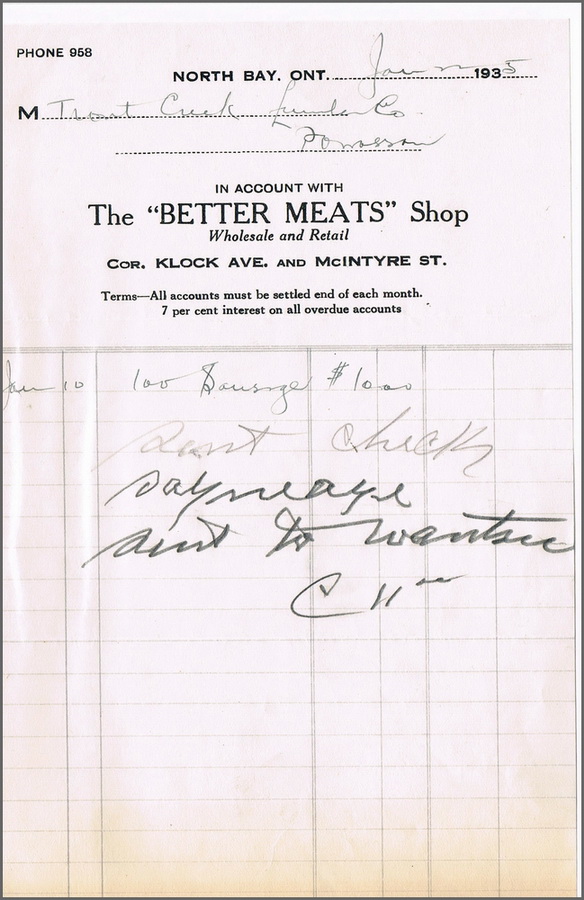 PHONE 958
NORTH BAY, ONT. Jan 1935
M Trout Creek Lumber Co.
Powassan
IN ACCOUNT WITH
The “BETTER MEATS” Shop
Wholesale and Retail
COR. KLOCK AVE. AND McINTYRE ST.
Terms—All accounts must be settled end of each month.
7 per cent interest on all overdue accounts
Jan 10 100 Sausage $10 00
sent check
sint to
C 11 00